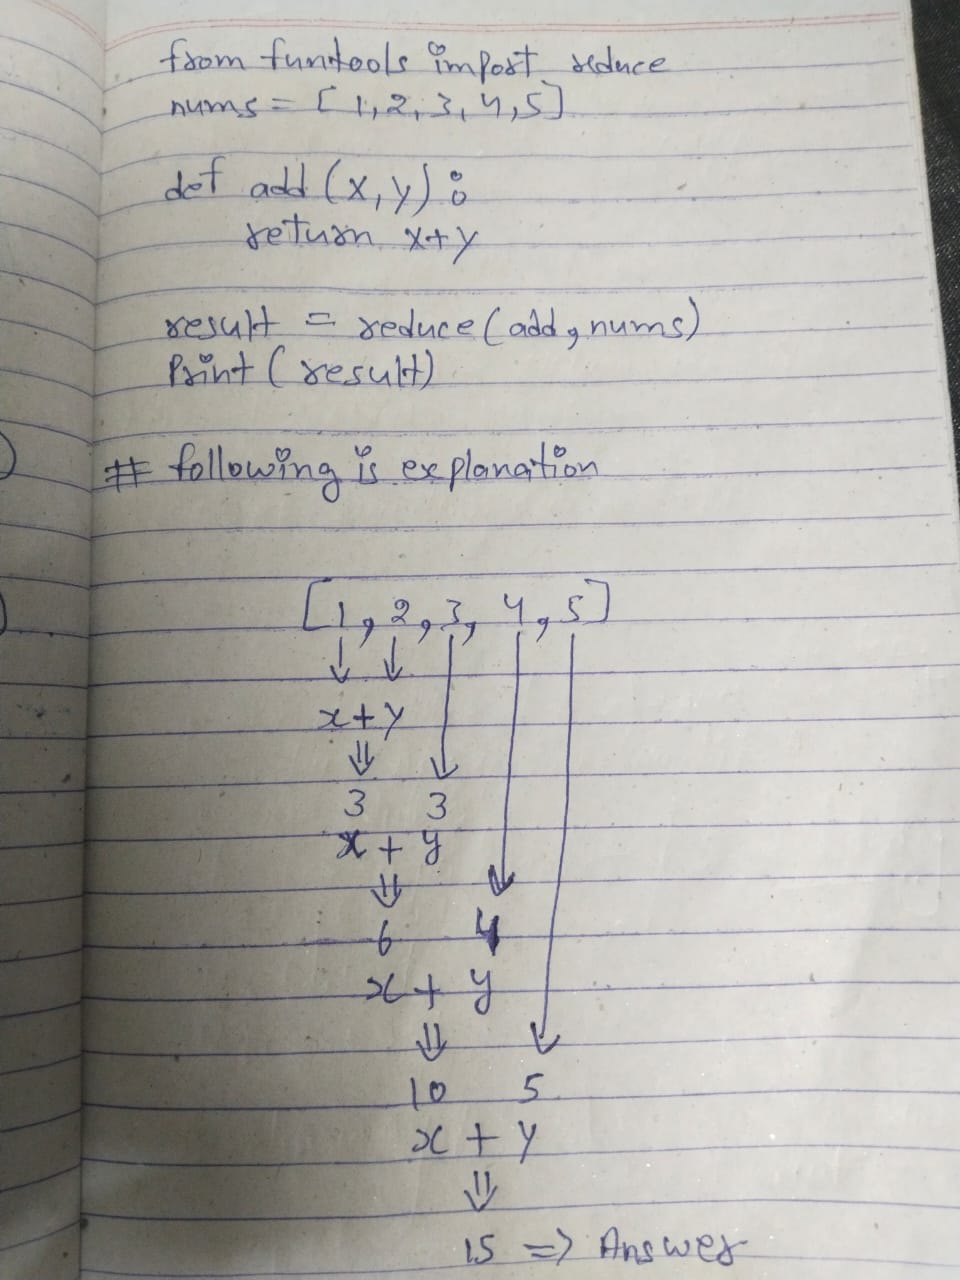 from funtools import reduce
nums = [1,2,3,4,5]
def add (x,y):
return x+y
result = reduce(add,nums)
Print (result)
# following is explanation
[1,2,3,4,5]
x+y
3 3
x + y
6 4
x + y
10 5
x + y
15 => Answer